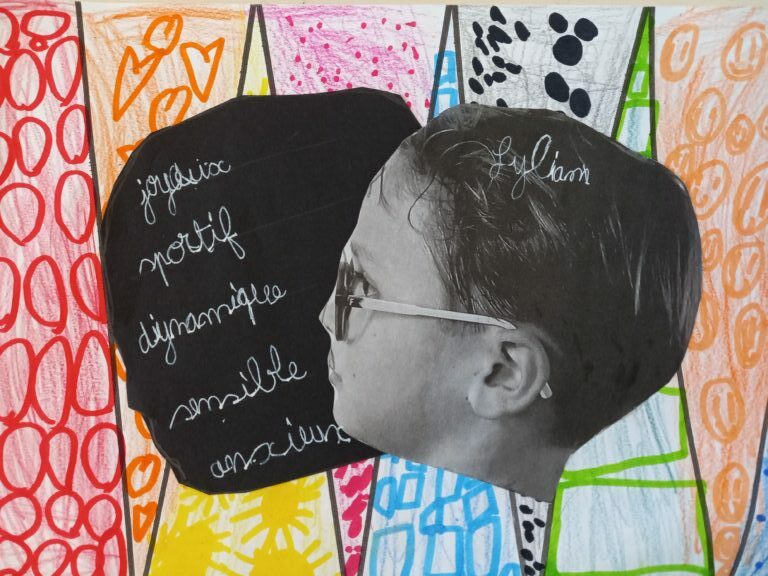 joyeux
sportif
dynamique
sensible
anxieux
Lyliam